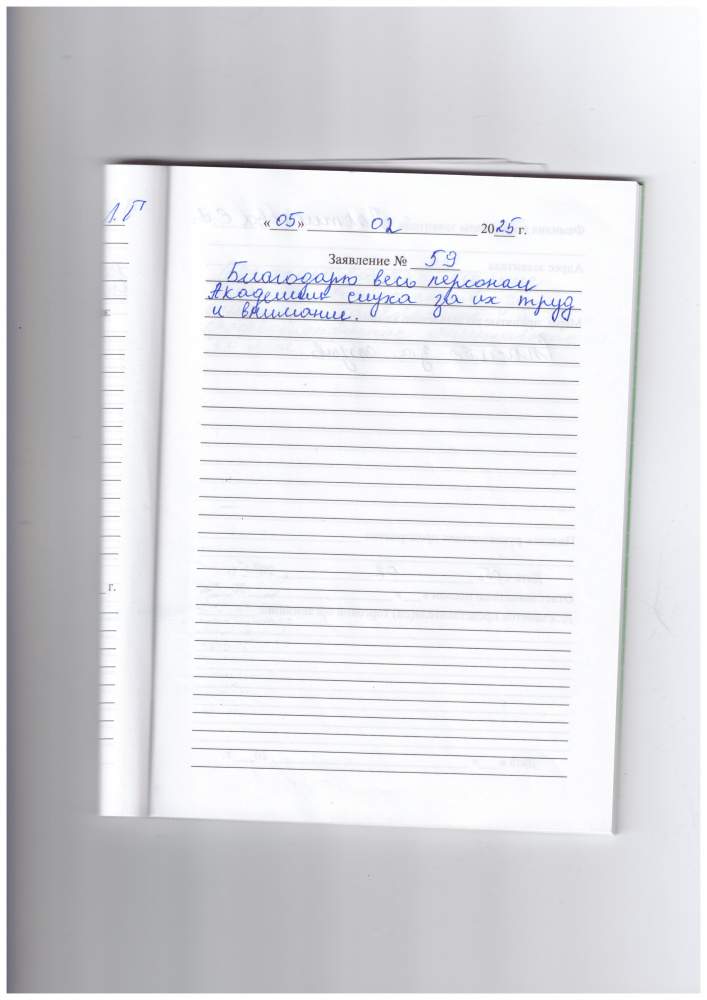 л.Г
«05» 02 2025 г.
Заявление № 59
Благодарю весь персонал
Академии слуха за их труд
и внимание.
г.